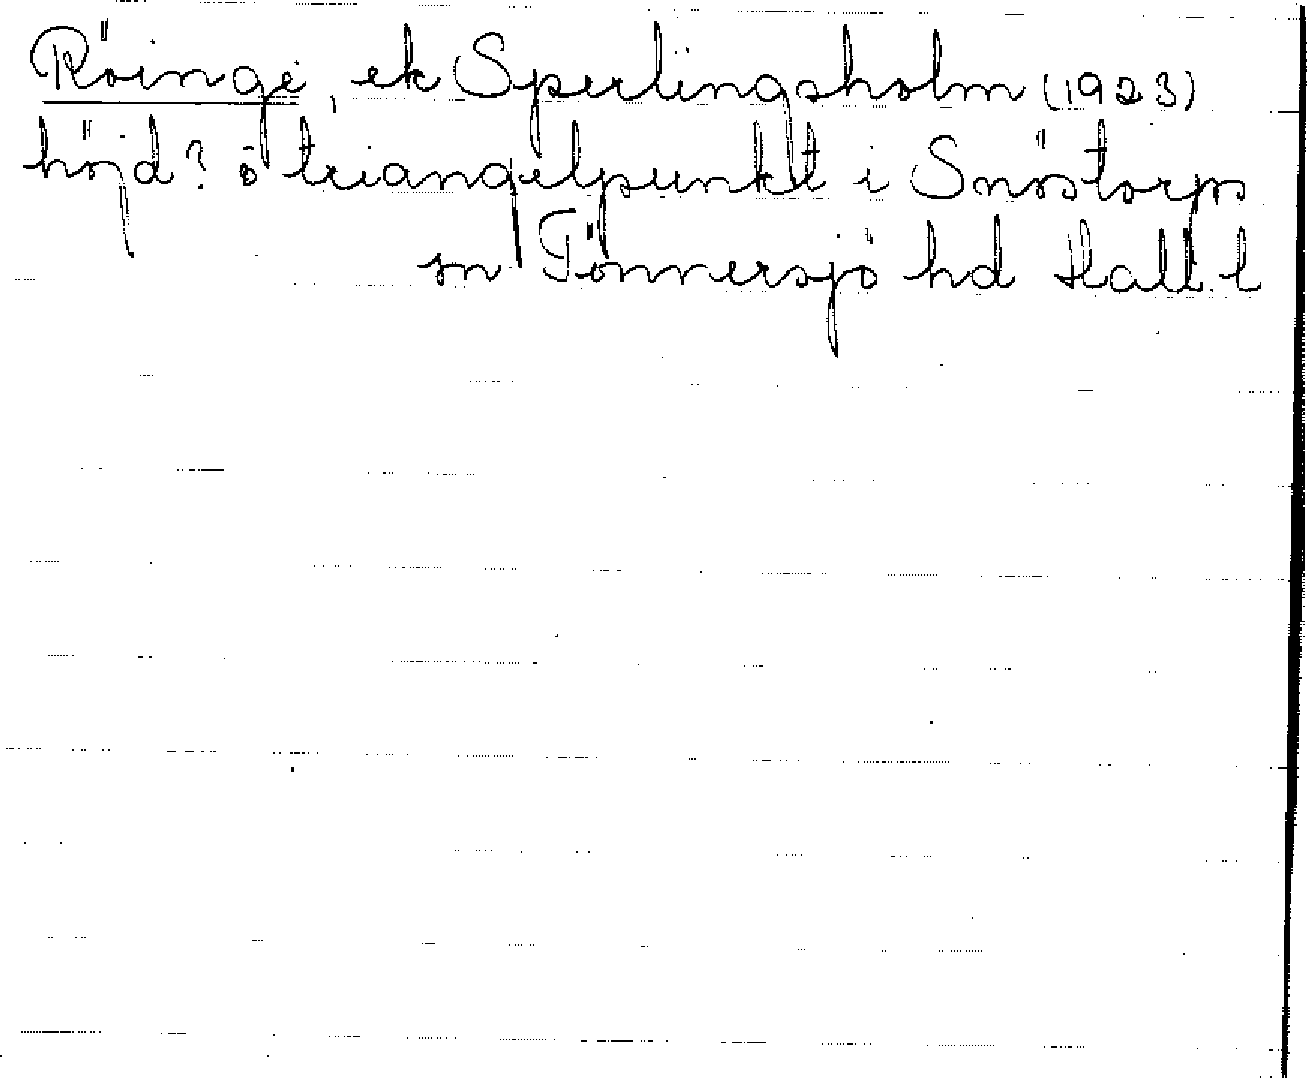 Röinge, ek Sperlingsholm (1923)
höjd? o triangelpunkt i Snöstorps
sn Tönnersjö hd Hall. l